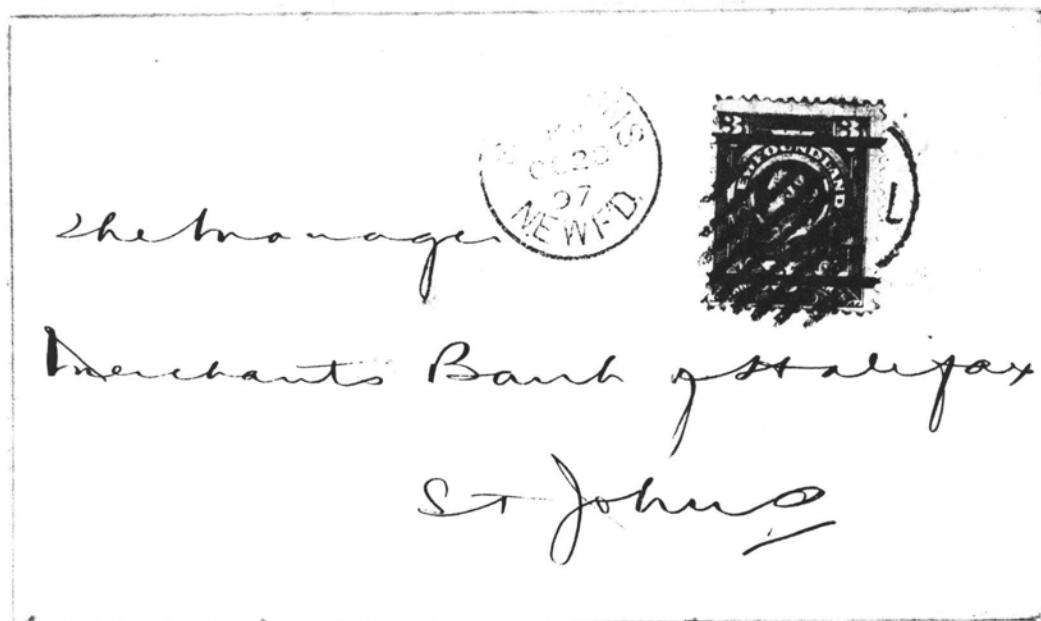 OC 2
97
NEWF'D.
3 3
NEWFOUNDLAND
L
The Manager
Merchants Bank of Halifax
St Johns